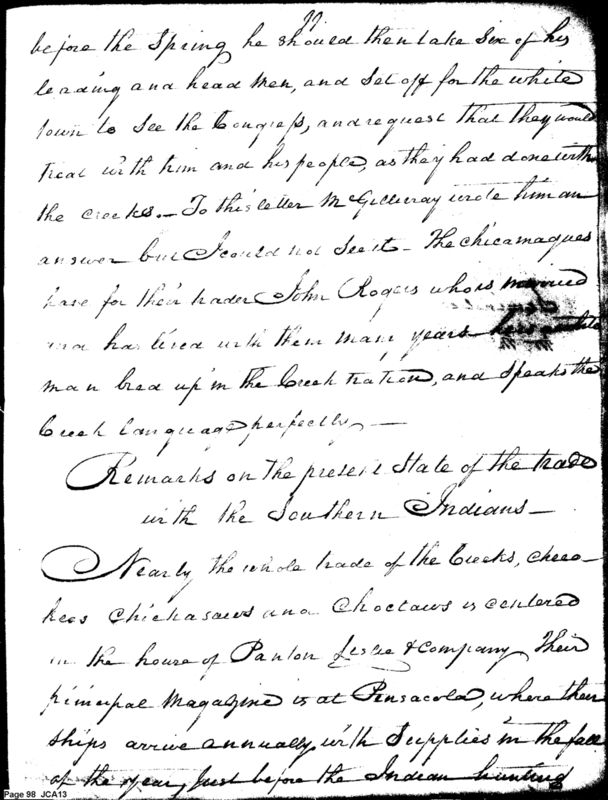 before the Spring he should then take Six of his
leading and head men, and set off for the white
town to see the Congress, and request that they would
treat with him and his people, as they had done with
the creeks. — To this letter McGillivray wrote him an
answer but I could not see it — The chicamagues
have for their trader John Rogers who is married
and has lived with them many years he is a white
man bred up in the Creek Nation, and speaks the
Creek language perfectly —
Remarks on the present State of the trade
with the Southern Indians —
Nearly the whole trade of the Creeks, chero-
kees Chickasaws and Choctaws is centered
in the house of Panton Leslie & Company Their
principal Magazine is at Pensacola, where their
ships arrive annually with Supplies in the fall
of the year, just before the Indian hunting
Page 98 JCA13